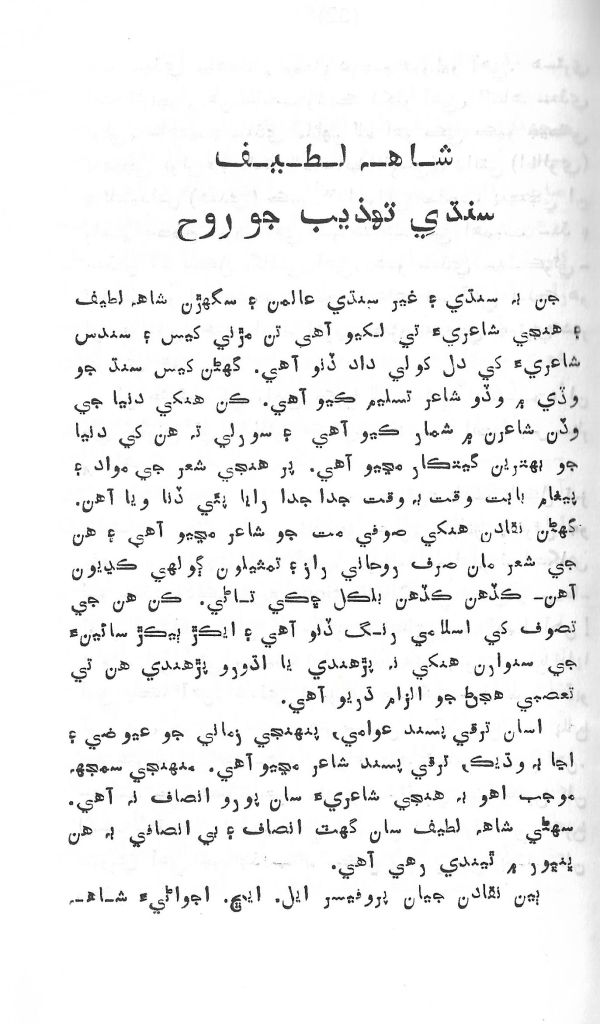 شاهہ لطيف
سنڌي تهذيب جو روح
جن بہ سنڌي ۽ غير سنڌي عالمن ۽ سگهڙن شاهہ لطيف
۽ هنجي شاعريءَ تي لکيو آهي تن مڙني کيس ۽ سندس
شاعريءَ کي دل کولي داد ڏنو آهي. گهڻن کيس سنڌ جو
وڏي ۾ وڏو شاعر تسليم ڪيو آهي. ڪن هنکي دنيا جي
وڏن شاعرن ۾ شمار ڪيو آهي ۽ سورلي تہ هن کي دنيا
جو بهترين گيتڪار مڃيو آهي. پر هنجي شعر جي مواد ۽
پيغام بابت وقت بہ وقت جدا جدا رايا پئي ڏنا ويا آهن.
گهڻن نقادن هنکي صوفي مت جو شاعر مڃيو آهي ۽ هن
جي شعر مان صرف روحاني راز ۽ تمثيلون ڳولهي ڪڍيون
آهن- ڪڏهن ڪڏهن بلڪل ڇڪي تاڻي. ڪن هن جي
تصوف کي اسلامي رنگ ڏنو آهي ۽ ايڪڙ ٻيڪڙ سائينءَ
جي سنوارن هنکي نہ پڙهندي يا اڌورو پڙهندي هن تي
تعصبي هجڻ جو الزام ڌريو آهي.
اسان ترقي پسند عوامي، پنهنجي زماني جو عيوضي ۽
اڃا بہ وڌيڪ، ترقي پسند شاعر مڃيو آهي. منهنجي سمجهہ
موجب اهو بہ هنجي شاعريءَ سان پورو انصاف نہ آهي.
سهڻي شاهہ لطيف سان گهٽ انصاف ۽ بي انصافي بہ هن
ڀنڀور ۾ ٿيندي رهي آهي.
ٻين نقادن جيان پروفيسر ايل. ايڇ. اجواڻيءَ شاهہ